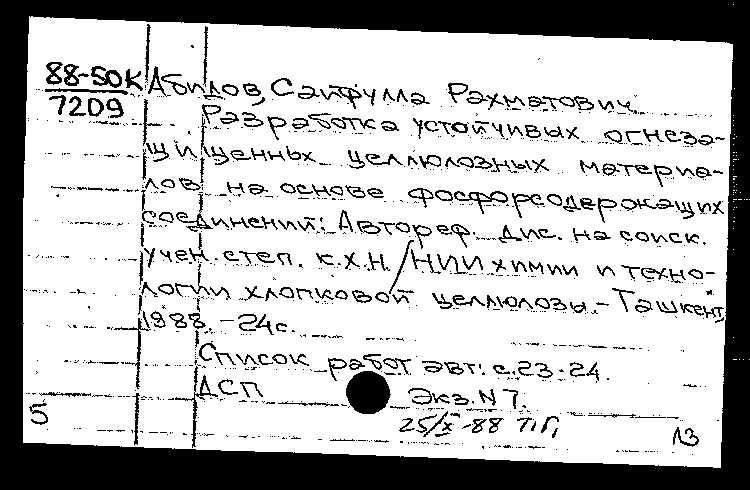 88-50К Абилов, Сайфулла Рахматович.
7209 Разработка устойчивых огнеза-
щищенных целлюлозных материа-
лов на основе фосфорсодержащих
соединений: Автореф. дис. на соиск.
учен. степ. к.х.н. / НИИ химии и техно-
логии хлопковой целлюлозы. - Ташкент,
1988. - 24с.
Список работ авт.: с.23-24.
ДСП Экз. N 7.
5 25/X-88 Т.Г.